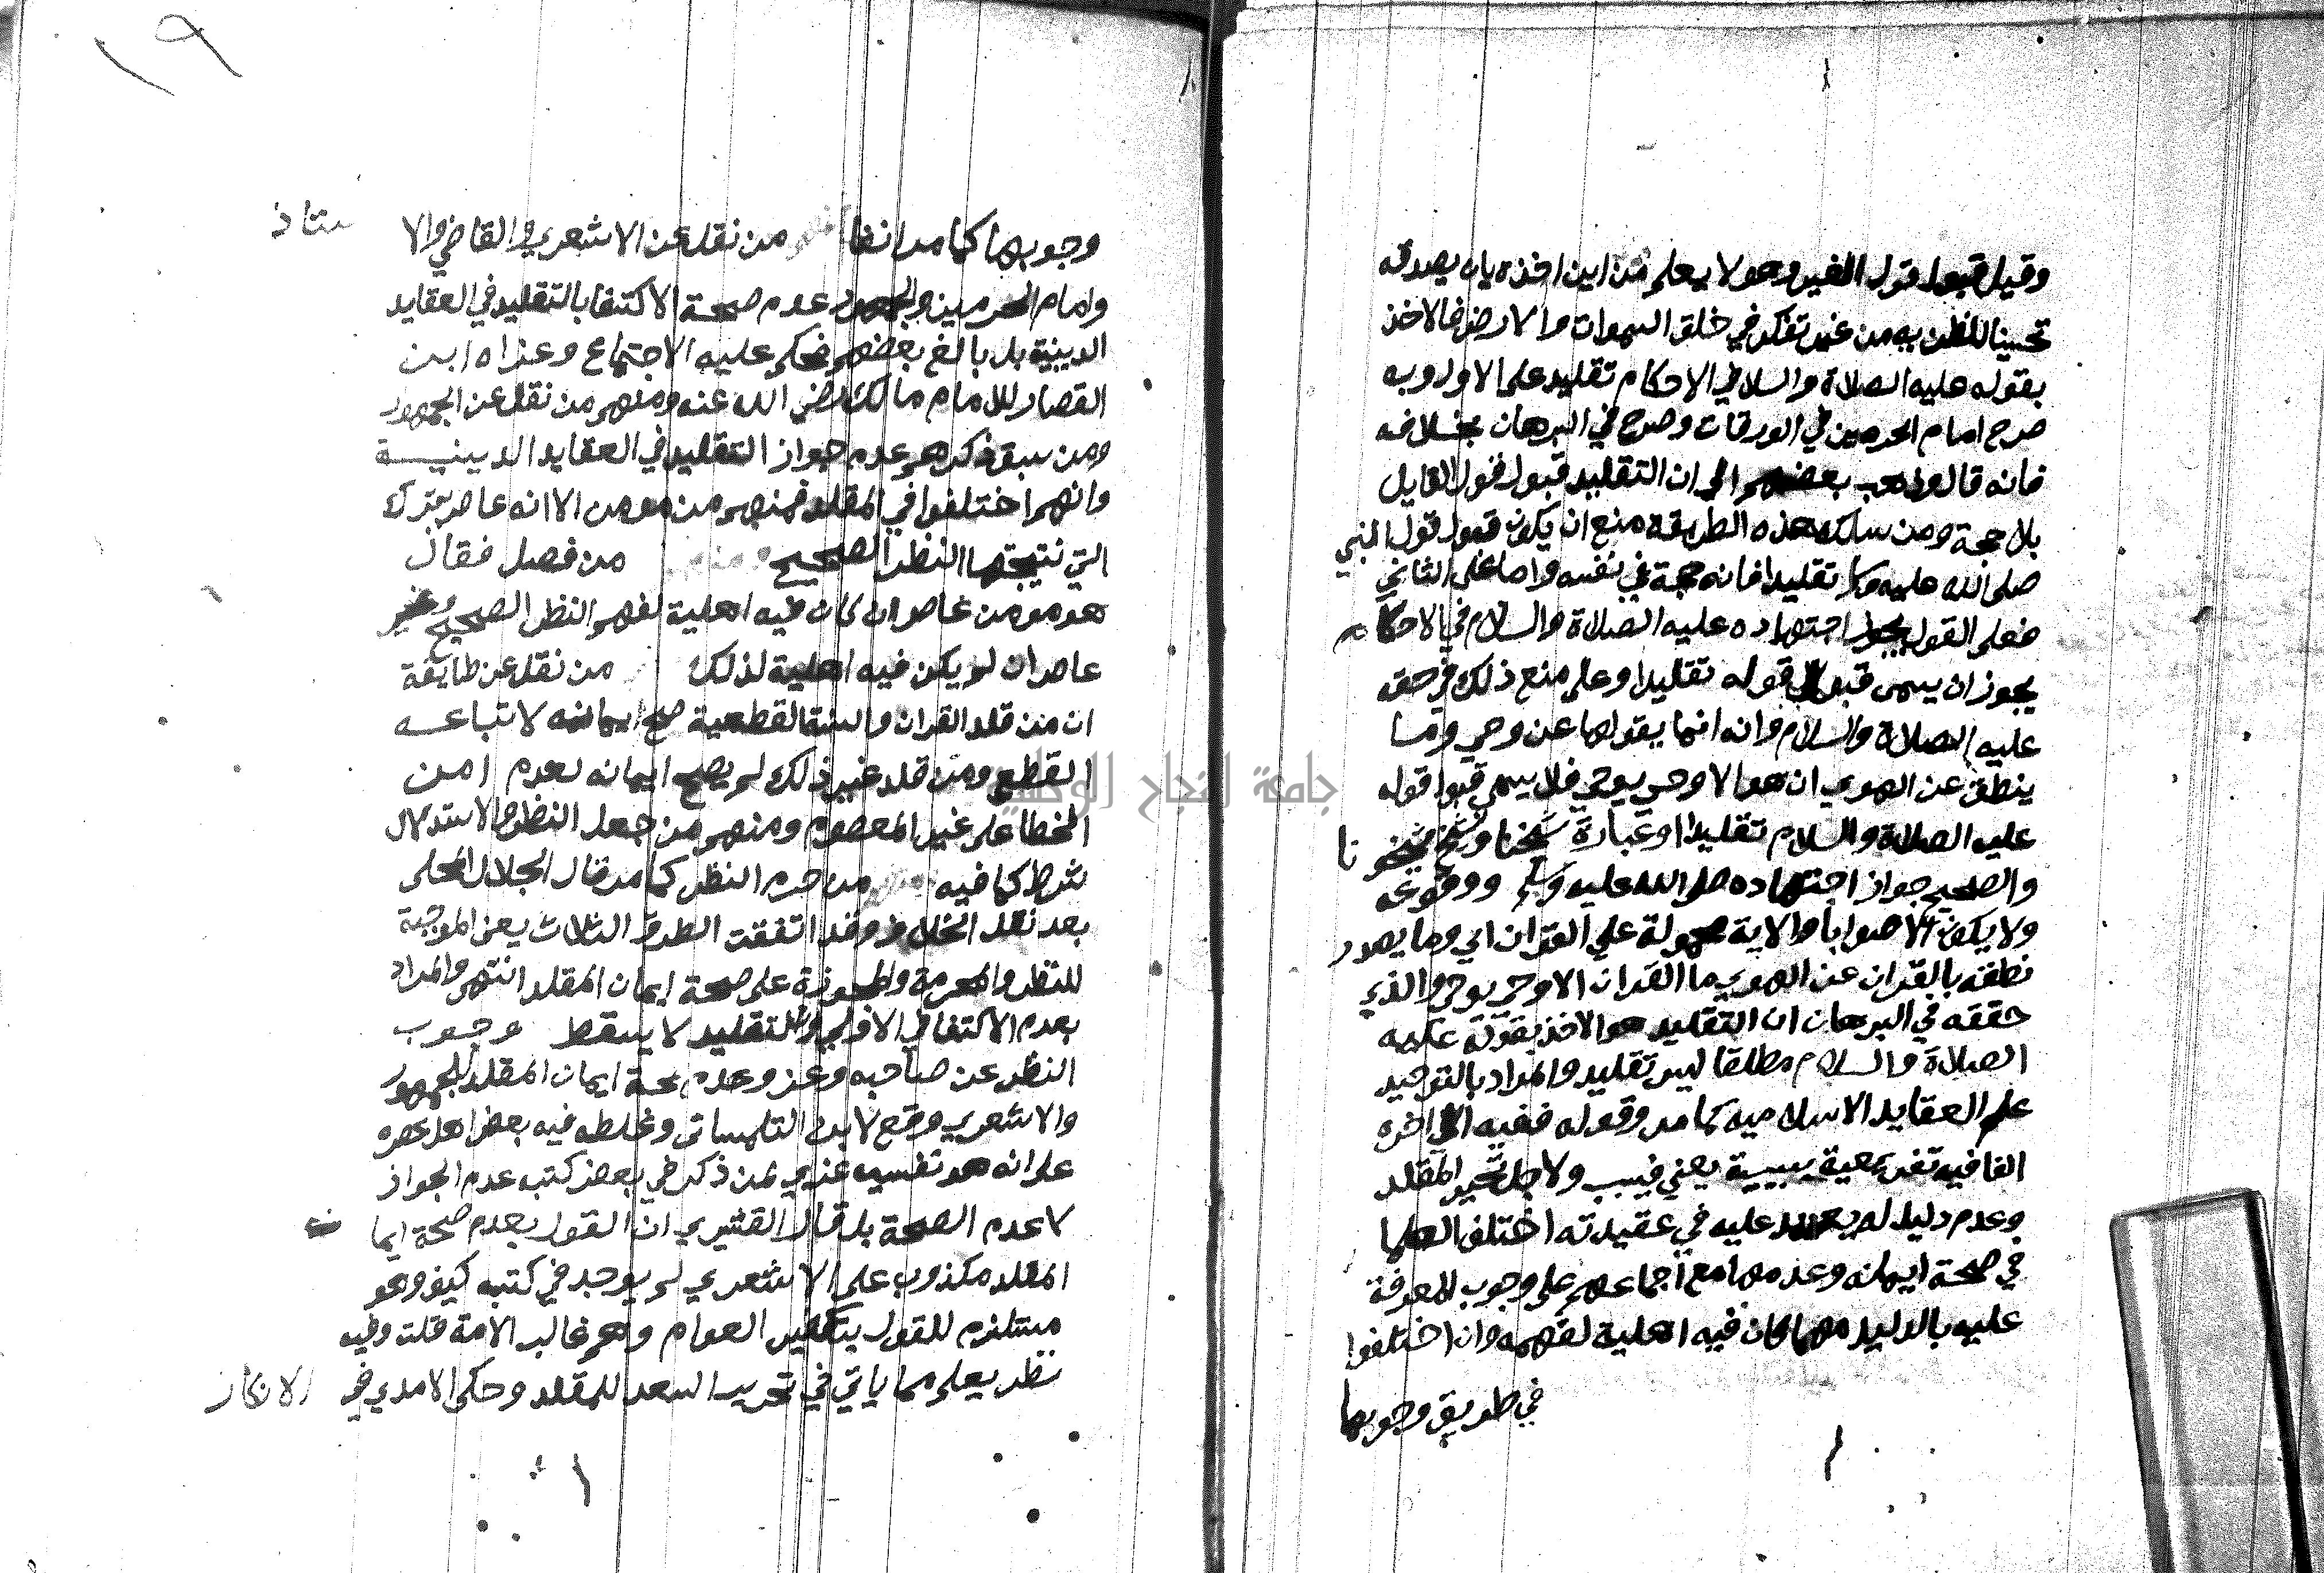 وقيل قبول قول الغير وهو لا يعلم من اين اخذه بان يصدقه
تحسينا للظن به من غير تفكر في خلق السموات والارض فالاخذ
بقوله عليه الصلاة والسلام في الاحكام تقليد على الاول وبه
صرح امام الحرمين في الورقات وصرح في البرهان بخلافه
فانه قال وذهب بعضهم الى ان التقليد قبول قول القايل
بلا حجة ومن سلك هذه الطريقة منع ان يكون قبول قول النبي
صلى الله عليه وسلم تقليدا فانه حجة في نفسه واما على الثاني
فعلى القول بجواز اجتهاده عليه الصلاة والسلام في الاحكام
يجوز ان يسمى قبول قوله تقليدا وعلى منع ذلك في حقه
عليه الصلاة والسلام وانه انما يقولها عن وحي وما
ينطق عن الهوي ان هو الا وحي يوحي فلا يسمى قبول قوله
عليه الصلاة والسلام تقليدا وعبارة شيخنا وشيخ شيخونا
والصحيح جواز اجتهاده صلى الله عليه وسلم ووقوعه
ولا يكون الا صوابا والاية محمولة علي القران اي وما يصدر
نطقه بالقران عن الهوي ما القران الا وحي يوحي والذي
حققه في البرهان ان التقليد هو الاخذ بقوله عليه
الصلاة والسلام مطلقا ليس تقليد والمراد بالتوحيد
علم العقايد الاسلاميه كما مر وقوله ففيه الى اخره
الفا فيه تفريعية سببية يعني فبسبب ولاجل تحير المقلد
وعدم دليل له يعتمد عليه في عقيدته اختلف العلما
في صحة ايمانه وعدمها مع اجماعهم على وجوب المعرفة
عليه بالدليل مهما كان فيه اهلية لفهمه وان اختلفوا
في طريق وجوبها
١٩
وجوبها كما مر انفا من نقل عن الاشعري والقاضي والاستاذ
وامام الحرمين والجمهور عدم صحة الاكتفا بالتقليد في العقايد
الدينية بل بالغ بعضهم فحكى عليه الاجتماع وعزاه ابن
القصار للامام مالك رضي الله عنه ومنهم من نقل عن الجمهور
ومن سبق ذكرهم عدم جواز التقليد في العقايد الدينية
وانهم اختلفوا في المقلد فمنهم من مومن الا انه عاص بترك
التي نتيجتها النظر الصحيح ومنهم من فصل فقال
هو مومن عاص ان كان فيه اهلية لفهم النظر الصحيح وغير
عاص ان لم يكن فيه اهلية لذلك من نقل عن طايفة
ان من قلد القران والسنة القطعية صح ايمانه لاتباعه
القطع ومن قلد غير ذلك لم يصح ايمانه لعدم امن
الخطا على غير المعصوم ومنهم من جعل النظر والاستدلال
شرط كما فيه من حرم النظر كما مر قال الجلال المحلى
بعد نقل الخلاف وقد اتفقت الطرق الثلاث يعني الموجبة
للنظر والمحرمة والمجوزة على صحة ايمان المقلد انتهى والمراد
بعدم الاكتفا في الاولى ان التقليد لا يسقط وجوب
النظر عن صاحبه وعز وعدم صحة ايمان المقلد للجمهور
والاشعري وقع لابن التلمساني وغلطه فيه بعض اهل عصره
على انه هو نفسه عزي لمن ذكر في بعض كتبه عدم الجواز
لا عدم الصحة بل قال القشيري ان القول بعدم صحة ايمان
المقلد مكذوب على الاشعري لم يوجد في كتبه كيف وهو
مستلزم للقول بتكفير العوام وهم غالب الامة قلت وفيه
نظر يعلم مما ياتي في تحرير السعد للمقلد وحكى الامدي في الابكار
جامعة النجاح الوطنية